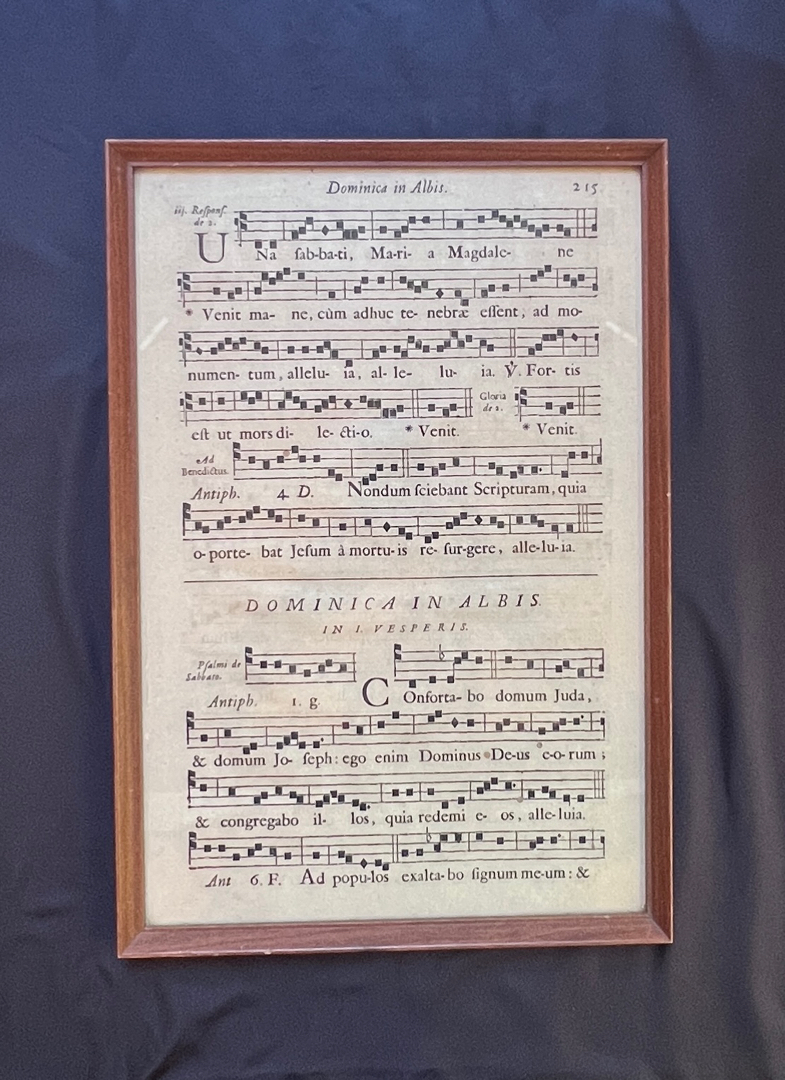 Dominica in Albis. 215.
iij. Reſponſ.
de 2.
UNa ſab-ba-ti, Ma-ri- a Magdale- ne
* Venit ma- ne, cùm adhuc te- nebræ eſſent, ad mo-
numen- tum, allelu- ia, al- le- lu- ia. ℣. For- tis
eſt ut mors di- le- cti-o. * Venit. Gloria de 2. * Venit.
Ad
Benedictus.
Antiph. 4 D. Nondum ſciebant Scripturam, quia
o-porte- bat Jeſum à mortu-is re- ſur-gere, alle-lu-ia.
DOMINICA IN ALBIS.
IN I. VESPERIS.
Pſalmi de
Sabbato.
Antiph. 1. g. COnforta- bo domum Juda,
& domum Jo- ſeph: ego enim Dominus De-us e-o-rum;
& congregabo il- los, quia redemi e- os, alle-luia.
Ant 6. F. Ad popu-los exalta-bo ſignum me-um: &